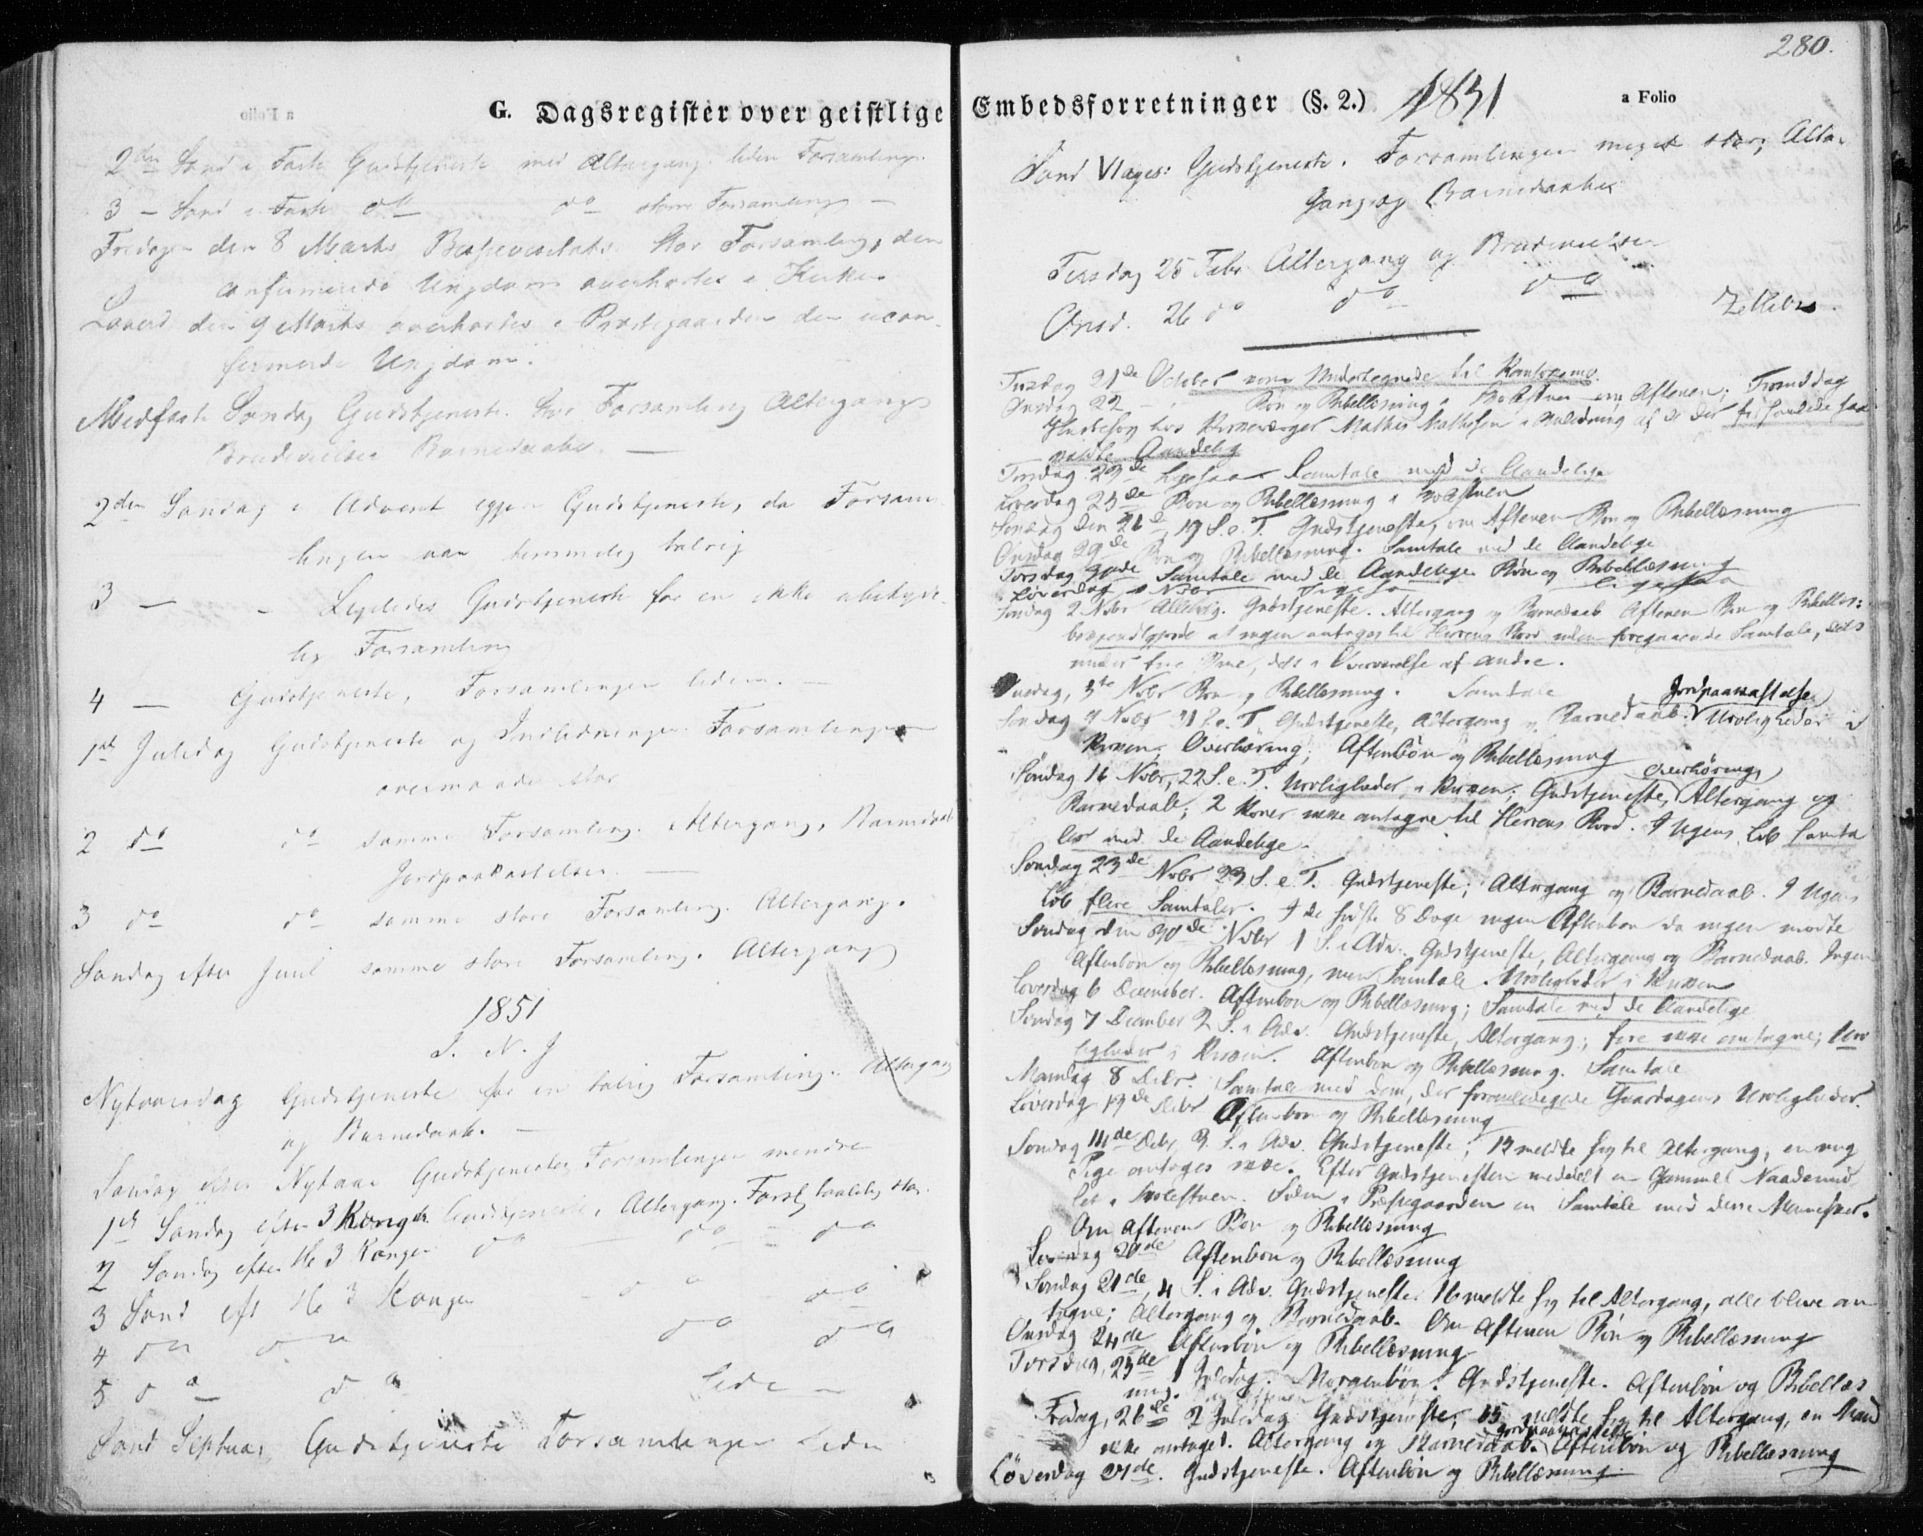 a Folio
G. Dagsregister over geistlige
2den Sønd i Faste Gudstjeneste med Altergang. liden Forsamling.
3 - Sønd i Faste do do større Forsamling -
Fredagen den 8 Marts Bispevisitats. Stor Forsamling, den
confirmerede Ungdom overhørtes i Kirken
Løverd den 9 Marts overhørtes i Præstegaarden den ucon-
firmerede Ungdom.
Midfaste Søndag Gudstjeneste. Stor Forsamling Altergang
Brudevielse Barnedaab. -
2den Søndag i Advent Gudstjeneste, da Forsam-
lingen var temmelig talrig
3 - - Ligeledes Gudstjeneste for en ikke ubetyde-
lig Forsamling
4 - Gudstjeneste, Forsamlingen liden. -
1ste Juledag Gudstjeneste og Forsamlingen
overmaade stor
2 do do samme Forsamling. Altergang, Barnedaab
Jordpaakastelse. -
3 do do samme store Forsamling. Altergang.
Søndag efter Juul samme store Forsamling. Altergang
1851
I. N. J
Nytaarsdag Gudstjeneste for en talrig Forsamling. Altergang
og Barnedaab. -
Søndag efter Nytaar Gudstjeneste, Forsamlingen mindre
1ste Søndag efter 3 Konger Gudstjeneste, Altergang. Forsl taalelig stor.
2 Søndag efter He 3 Konger do - do - do
3 Sønd eft He 3 Konger - do do
4 do do do do
5 do - do liden -
Sønd Septuag. Gudstjeneste Forsamlingen liden
280.
Embedsforretninger (§. 2.) 1851
a Folio
Sønd Gudstjeneste. Forsamlingen meget stor, Alter-
gang og Barnedaab
Tirsdag 25 Febr Altergang og Brudevielse
Onsd. 26 do do do
Zetlitz.
Tirsdag 21de October kom Undertegnede til Kautokeino.
Onsdag 22 - Bøn og Bibellæsning i om Aftenen; Formiddag
hos Kirkeværger Mathis Mathisen i Anledning af de der
Aandelig
Torsdag 23de Ligesaa Samtale med de Aandelige
Løverdag 25de Bøn og Bibellæsning i
Søndag den 26de, 19 S. e. T. Gudstjeneste, om Aftenen Bøn og Bibellæsning
Onsdag 29de Bøn og Bibellæsning. Samtale med de Aandelige
Torsdag 30de Samtale med de Aandelige Bøn og Bibellæsning
Løverdag 1 Novbr ligesaa ligesaa
Søndag 2 Novbr Allehelg. Gudstjeneste. Altergang og Barnedaab Aftenen Bøn og Bibellæs:
bekjendtgjorde at ingen antages til Herrens Bord uden foregaaende Samtale, dels
under fire Øine, dels i Overværelse af andre.
Novbr Bøn og Bibellæsning. Samtale
Jordpaakastelse
Søndag 9 Novbr 21 S. e. T. Gudstjeneste, Altergang og Barnedaab. Uroligheder i
Kirken. Overhøring; Aftenbøn og Bibellæsning
Overhøring
Søndag 16 Novbr, 22 S. e. T. Uroligheder i Kirken; Gudstjeneste, Altergang og
Barnedaab; 2 Koner ikke antagne til Herrens Bord. I Ugens Løb Samta
ler med de Aandelige.
Søndag 23de Novbr 23 S. e. T. Gudstjeneste; Altergang og Barnedaab. I Ugens
Løb flere Samtaler. I de sidste 8 Dage ingen Aftenbøn da ingen mødte
Søndag den 30de Novbr 1 S. i Adv. Gudstjeneste, Altergang og Barnedaab. Ingen
Aftenbøn og Bibellæsning, men Samtale. Uroligheder i Kirken
Løverdag 6 December. Aftenbøn og Bibellæsning; Samtale med de Aandelige
Søndag 7 December 2 S. i Adv. Gudstjeneste, Altergang; fire ikke antagne; Uro
ligheder i Kirken. Aftenbøn og Bibellæsning. Samtale
Mandag 8 Decbr. Samtale med dem, der foranledigede Gaardagens Uroligheder.
Løverdag 13de Decbr Aftenbøn og Bibellæsning
Søndag 14de Decbr 3 S. i Adv. Gudstjeneste; 12 meldte sig til Altergang, en ung
Pige antages ikke. Efter Gudstjenesten meddelt en Gammel Naademid
let i Siden i Præstegaarden en Samtale med dene Mennesker.
Om Aftenen Bøn og Bibellæsning
Løverdag 20de Aftenbøn og Bibellæsning
Søndag 21de, 4 S. i Adv. Gudstjeneste. 16 meldte sig til Altergang, alle bleve an
tagne; Altergang og Barnedaab. Om Aftenen Bøn og Bibellæsning
Onsdag 24de Aftenbøn og Bibellæsning
Torsdag, 25de 1 Juledag. Morgenbøn. Gudstjeneste. Aftenbøn og Bibellæs
ning.
Fredag, 26de 2 Juledag Gudstjeneste; 15 meldte sig til Altergang, en Mand
Jordpaakastelse
ikke antaget. Altergang og Barnedaab. Aftenbøn og Bibellæsning
Løverdag 27de. Gudstjeneste. Aftenbøn og Bibellæsning